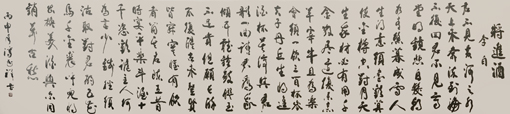 將進酒
李白
君不見黃河之水
天上來奔流到海
不復回君不見高
堂明鏡悲白髮朝
如青絲暮成雪人
生得意須盡歡莫
使金樽空對月天
生我材必有用千
金散盡還復來烹
羊宰牛且為樂
會須一飲三百杯岑
夫子丹丘生將進
酒杯莫停與君
歌一曲請君為我
傾耳聽鐘鼓饌玉
不足貴但願長醉
不願醒古來聖賢
皆寂寞惟有飲
者留其名陳王昔
時宴平樂斗酒十
千恣歡謔主人何
為言少錢徑須
沽取對君酌五花
馬千金裘呼兒將
出換美酒與爾同
銷萬古愁
丙申